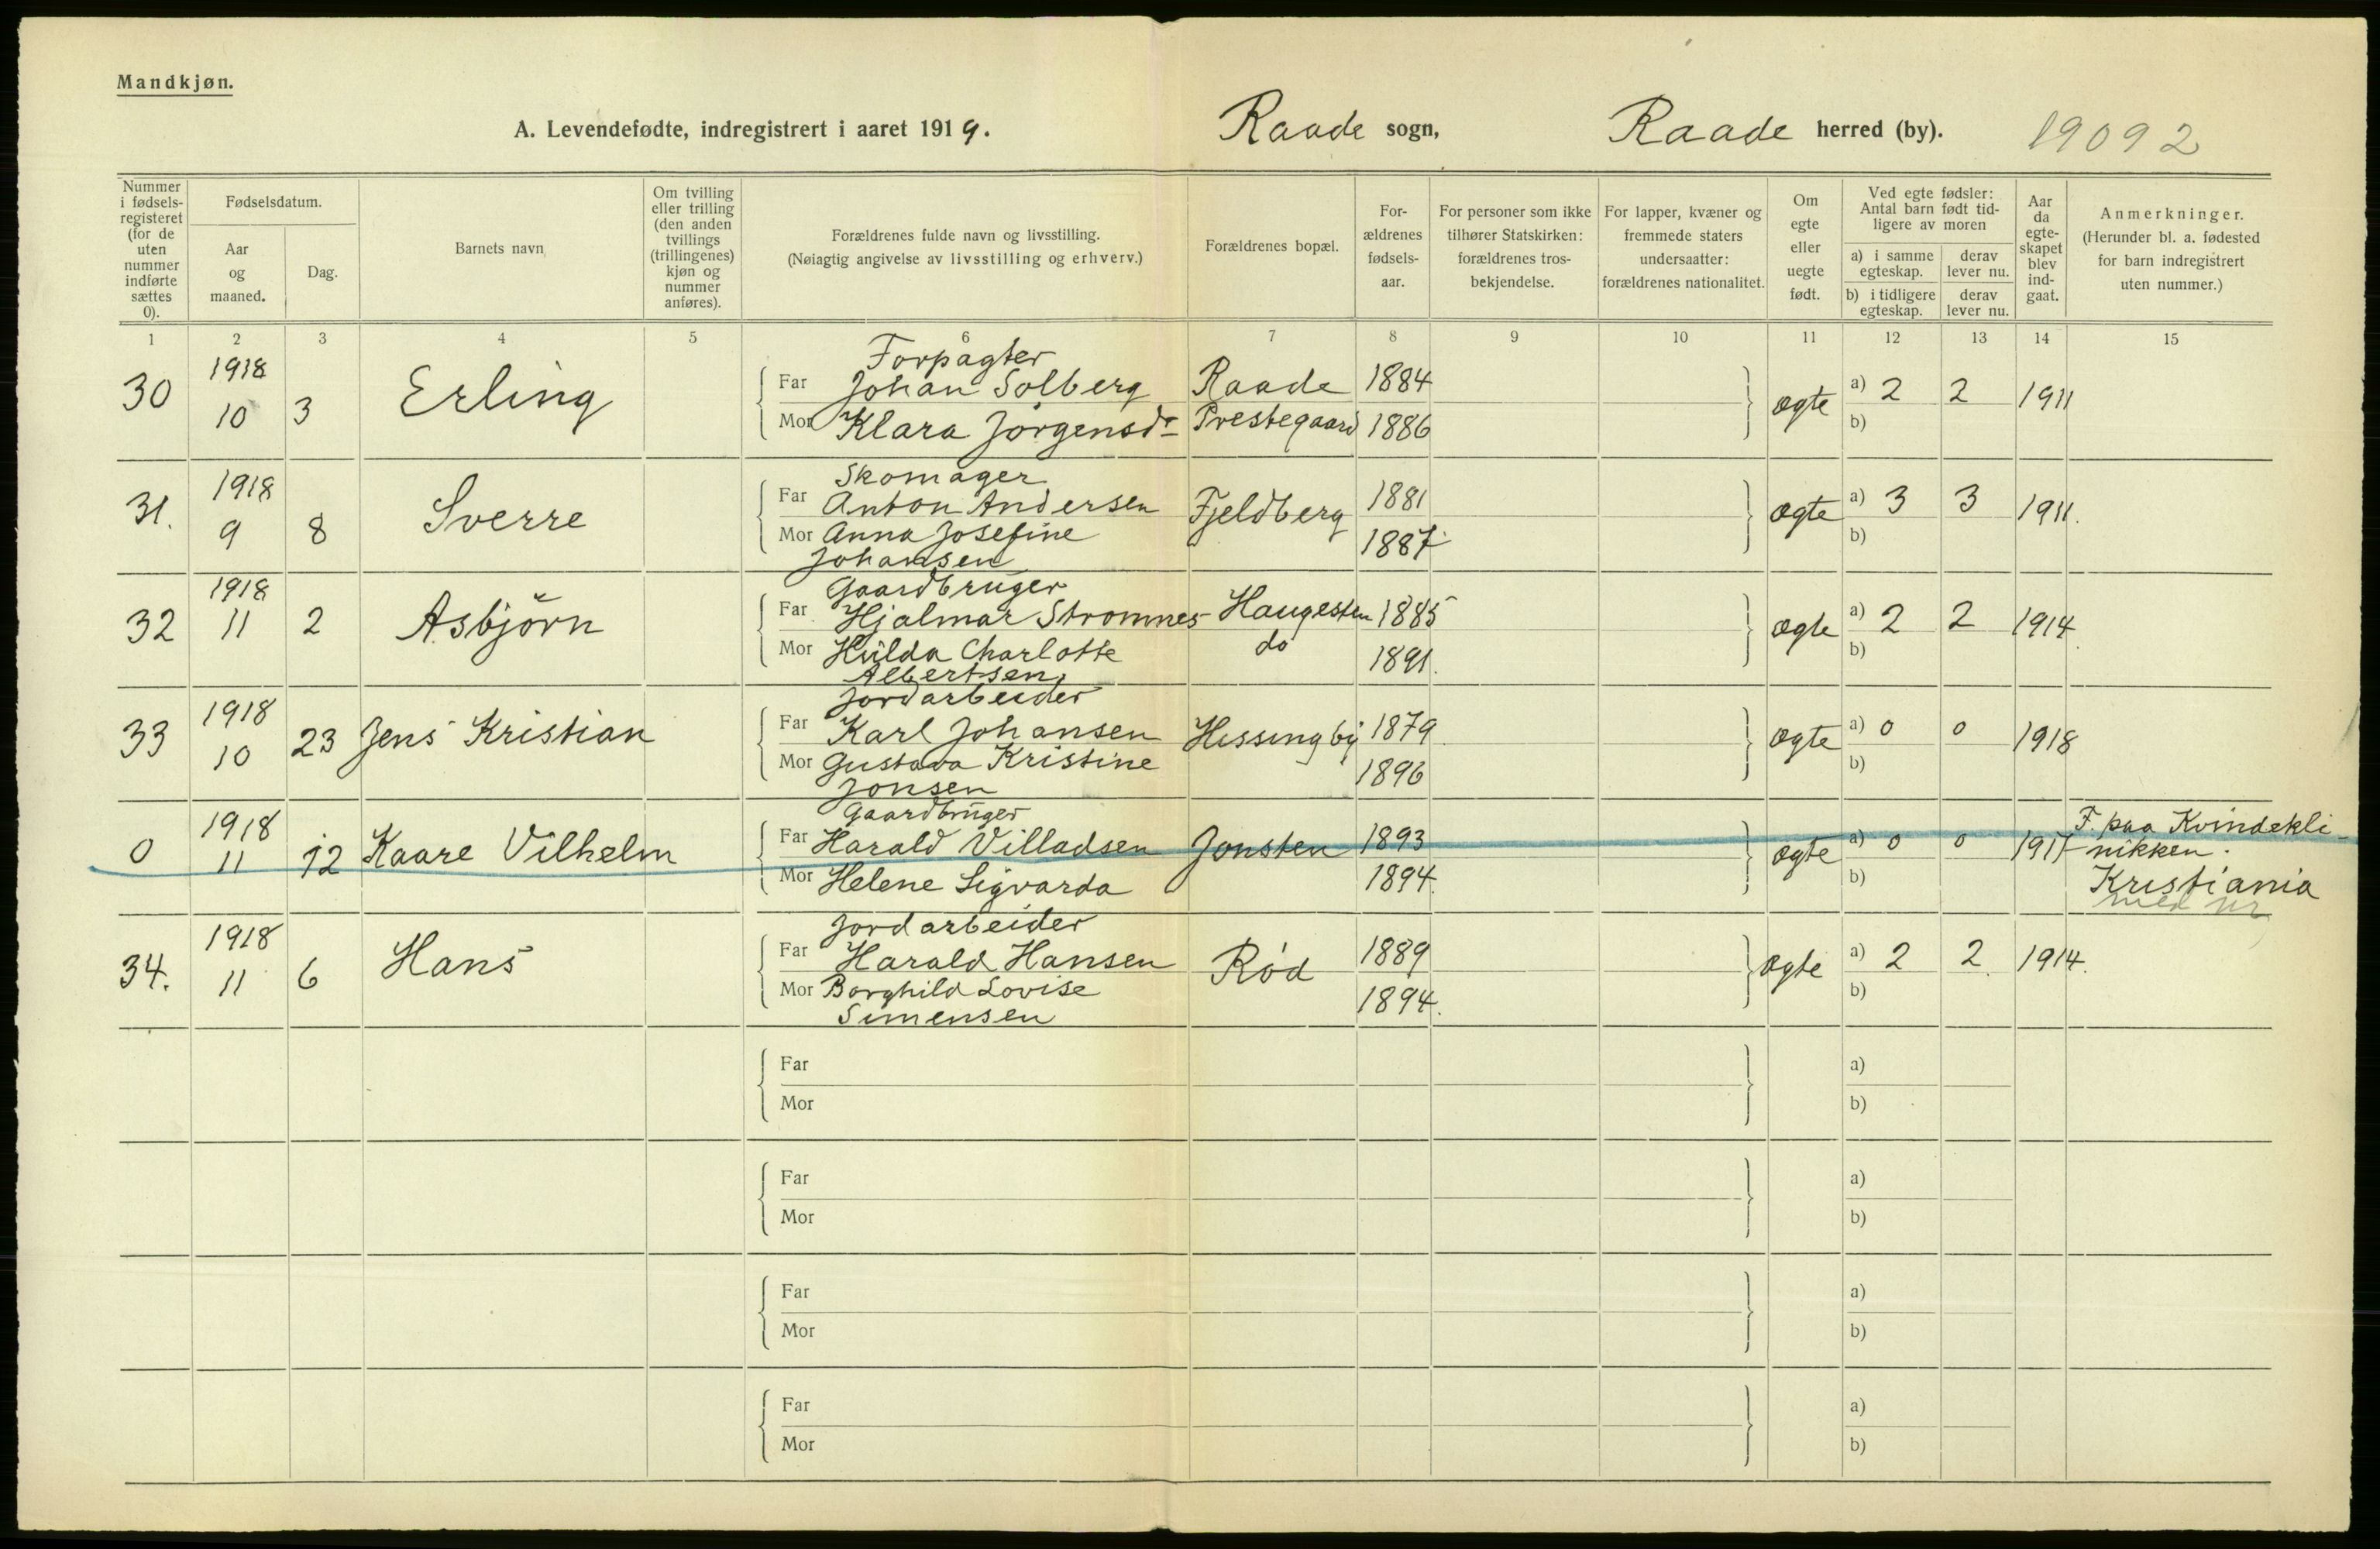 Mandkjøn.
A. Levendefødte, indregistrert i aaret 1919. Raade sogn, Raade herred (by). 19092
Nummer i fødsels-registeret (for de uten nummer indførte sættes 0).
Fødselsdatum.
Aar og maaned.
Dag.
Barnets navn
Om tvilling eller trilling (den anden tvillings (trillingenes) kjøn og nummer anføres).
Forældrenes fulde navn og livsstilling.
(Nøiagtig angivelse av livsstilling og erhverv.)
Forældrenes bopæl.
For-ældrenes fødsels-aar.
For personer som ikke tilhører Statskirken: forældrenes tros-bekjendelse.
For lapper, kvæner og fremmede staters undersaatter: forældrenes nationalitet.
Om egte eller uegte født.
Ved egte fødsler: Antal barn født tid-ligere av moren
a) i samme egteskap.
derav lever nu.
b) i tidligere egteskap.
derav lever nu.
Aar da egte-skapet blev ind-gaat.
Anmerkninger.
(Herunder bl. a. fødested for barn indregistrert uten nummer.)
1 2 3 4 5 6 7 8 9 10 11 12 13 14 15
Forpagter
30 1918 10 3 Erling Far Johan Solberg Raade 1884 ægte a) 2 2 1911
Mor Klara Jörgensdr Prestegaard 1886 b)
Skomager
31. 1918 9 8 Sverre Far Anton Andersen Fjeldberg 1881 ægte a) 3 3 1911.
Mor Anna Josefine 1887 b)
Johansen
Gaardbruger
32 1918 11 2 Asbjörn Far Hjalmar Stromnes Haugesten 1885 ægte a) 2 2 1914
Mor Hilda Charlotte do 1891. b)
Albertsen
Jordarbeider
33 1918 10 23 Jens Kristian Far Karl Johansen Hissingby 1879 ægte a) 0 0 1918
Mor Gustava Kristine 1896 b)
Jonsen
Gaardbruger
0 1918 11 12 Kaare Vilhelm Far Harald Villadsen Jonsten 1893 ægte a) 0 0 1917 F. paa Kvindekli-
nikken.
Mor Helene Sigvarda 1894. b) Kristiania
med nr
Jordarbeider
34. 1918 11 6 Hans Far Harald Hansen Rød 1889 ægte a) 2 2. 1914.
Mor Borghild Lovise 1894. b)
Simensen
Far a)
Mor b)
Far a)
Mor b)
Far a)
Mor b)
Far a)
Mor b)